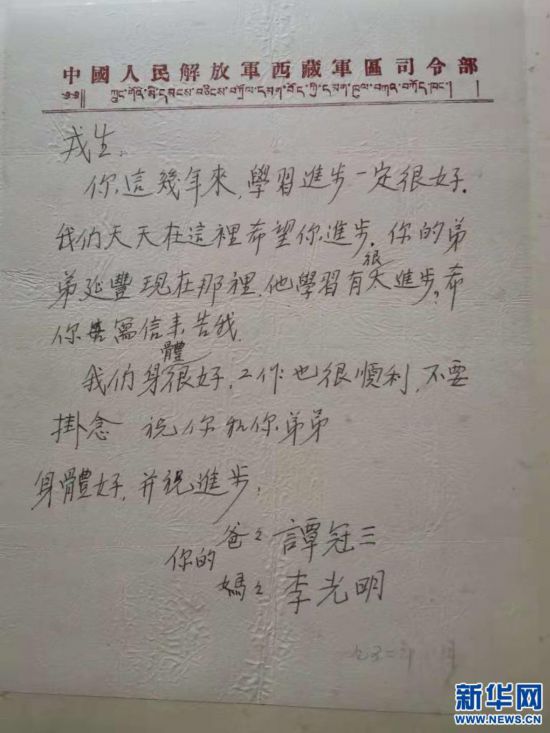 中國人民解放軍西藏軍區司令部
戎生,
你這幾年來,學習進步一定很好.
我们天天在這裡希望你進步.你的弟
弟延豐現在那裡.他學習有很大進步,希
你寫信來告我.
我们身體很好,工作也很順利,不要
掛念 祝你和你弟弟
身體好,并祝進步,
你的
爸々譚冠三
媽々李光明
一九五二年
新华网
WWW.NEWS.CN